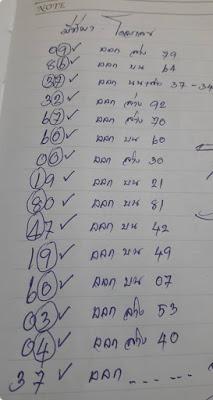 NOTE
ที่มา : ไดอาดาล
09 ✓ ออก ล่าง 79
86 ✓ ออก บน 64
37 ✓ ออก บน+ล่าง 37-34
32 ✓ ออก ล่าง 92
67 ✓ ออก ล่าง 70
60 ✓ ออก บน 60
00 ✓ ออก ล่าง 30
19 ✓ ออก บน 21
80 ✓ ออก บน 81
47 ✓ ออก บน 42
19 ✓ ออก บน 49
60 ✓ ออก บน 07
03 ✓ ออก ล่าง 53
04 ✓ ออก ล่าง 40
37 ✓ ออก ------